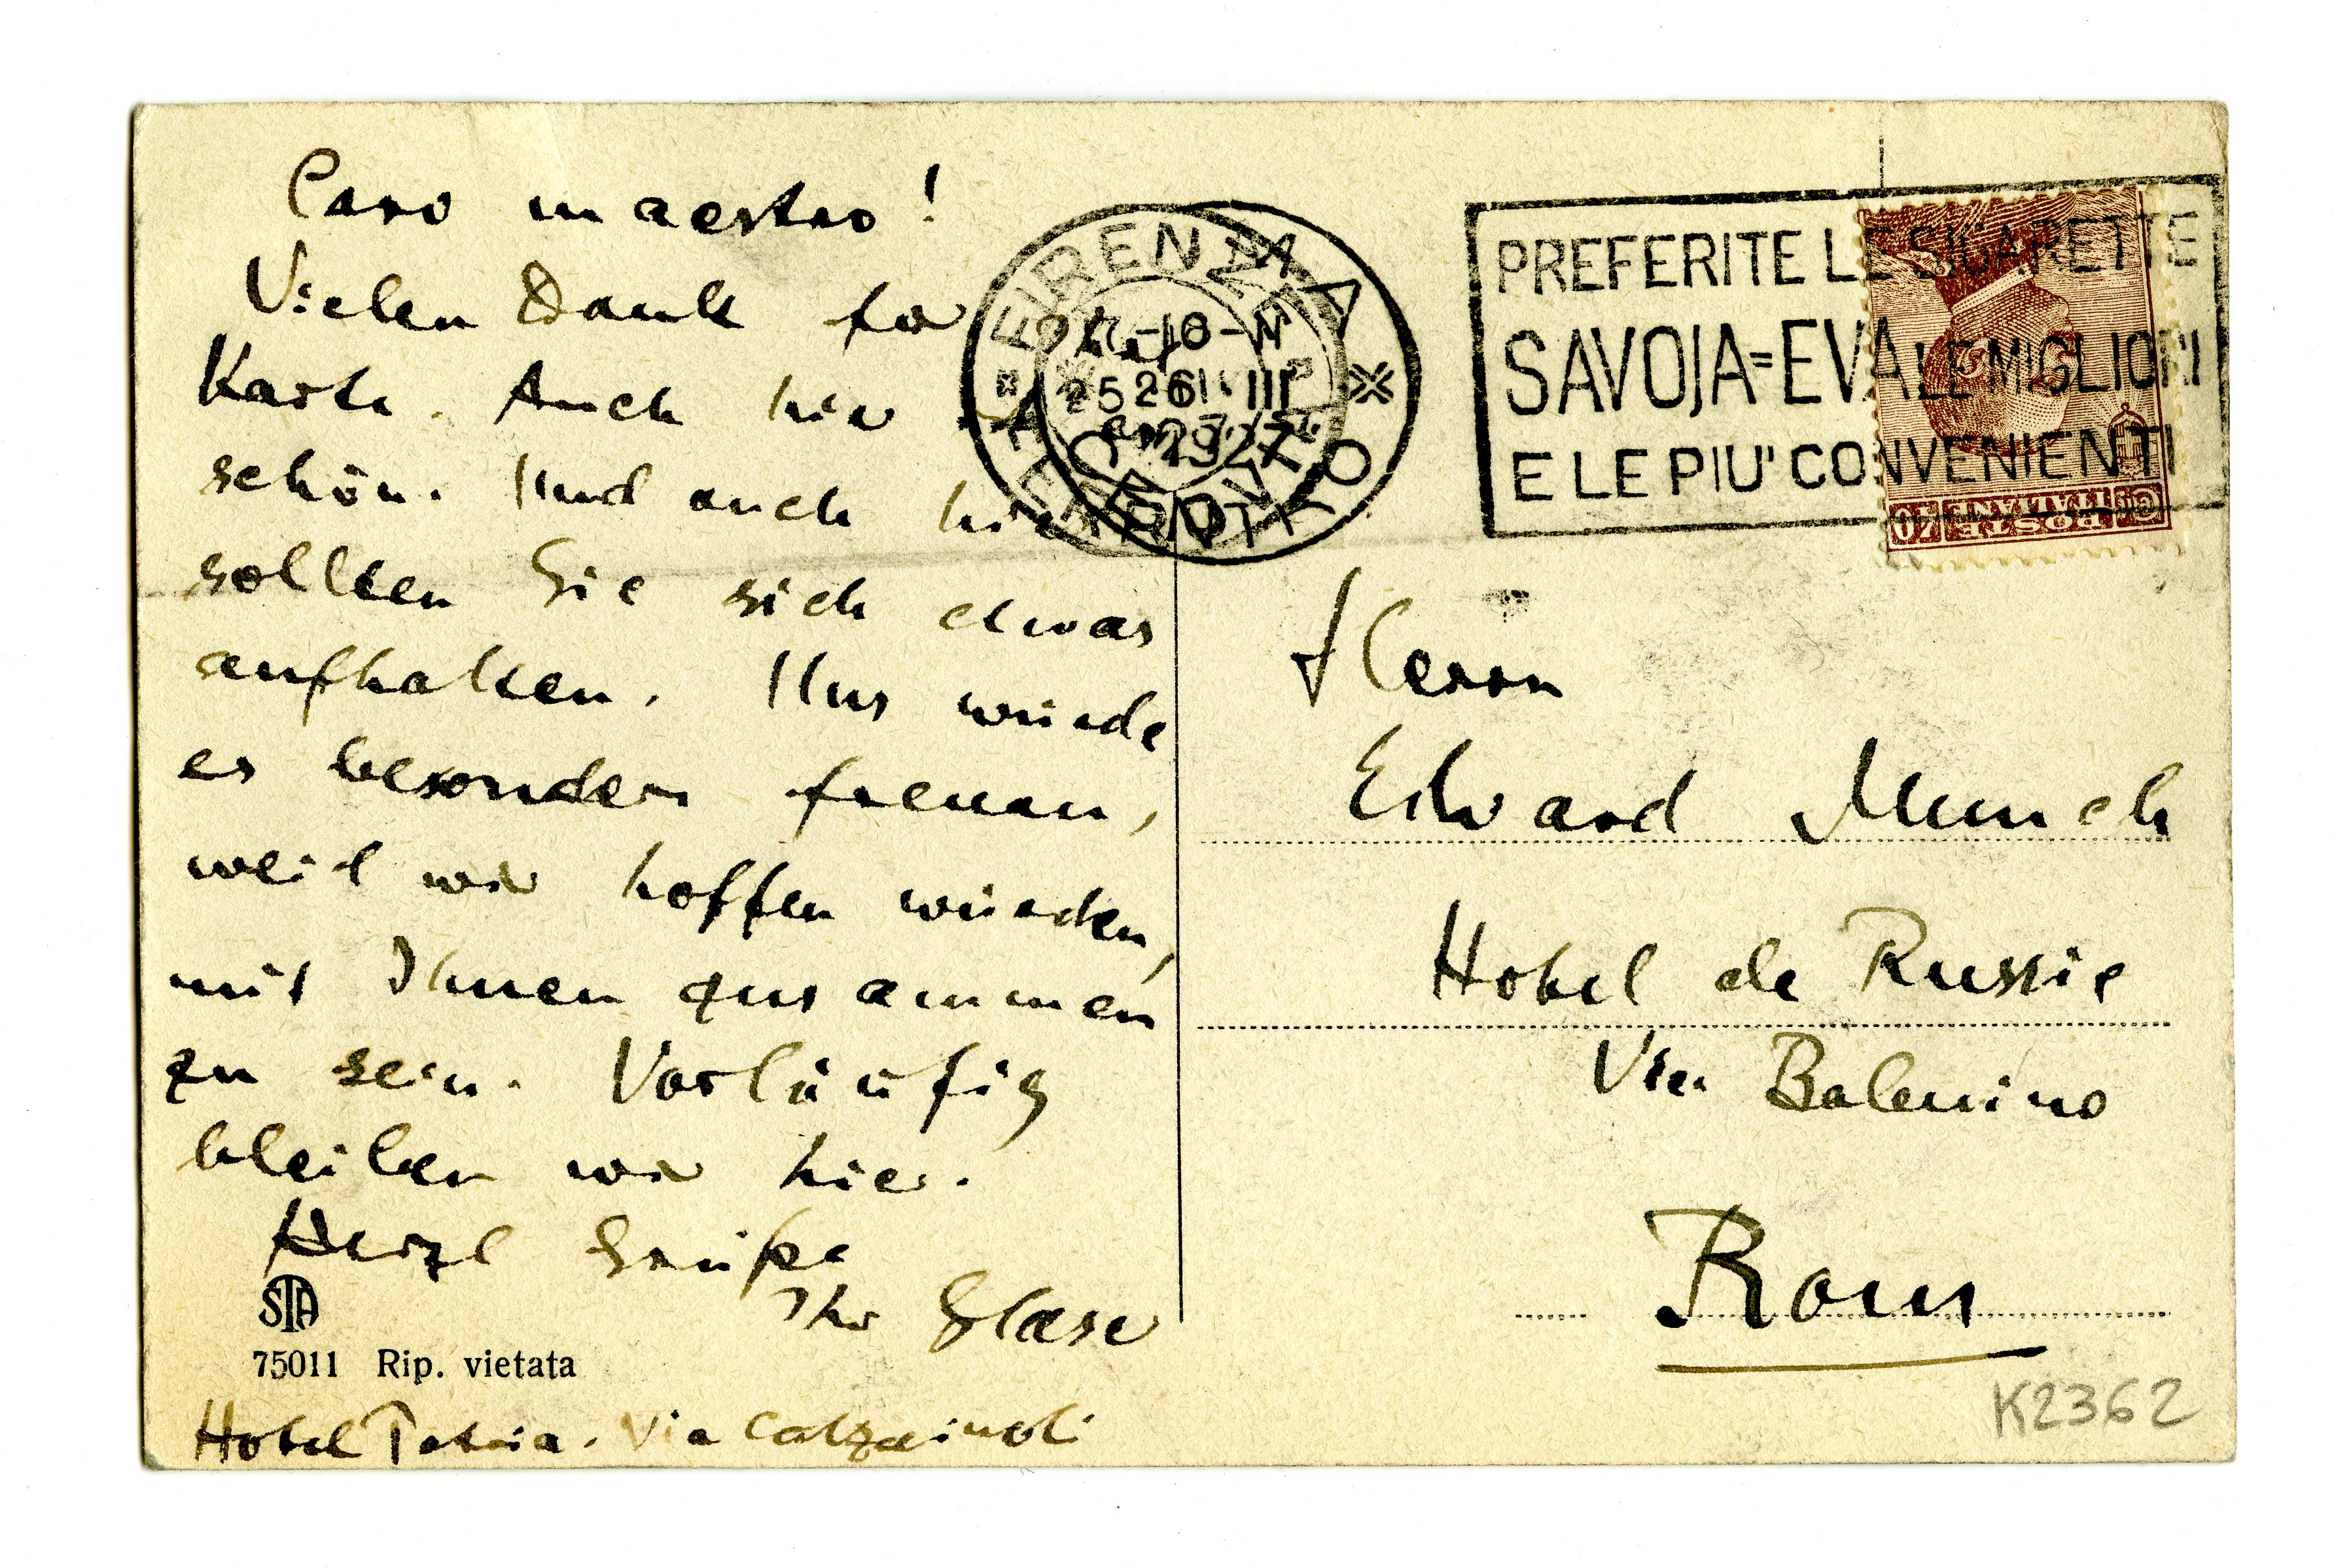 Caro maestro!
Vielen Dank für
Karte. Auch hier ist
schön. Und auch hier
sollten Sie sich etwas
aufhalten. Uns würde
es besonders freuen,
weil wir hoffen würden,
mit Ihnen zusammen
zu sein. Vorläufig
bleiben wir hier.
Herzl Grüße
Ihr Glaser
STA
75011 Rip. vietata
Hotel Patria. Via Calzaiuoli
FIRENZE
1927
PREFERITE LE SIGARETTE
SAVOJA=EVA LE MIGLIORI
E LE PIU' CONVENIENTI
POSTE
ITALIANE
Herrn
Edvard Munch
Hotel de Russie
Via Babuino
Rom
K2362